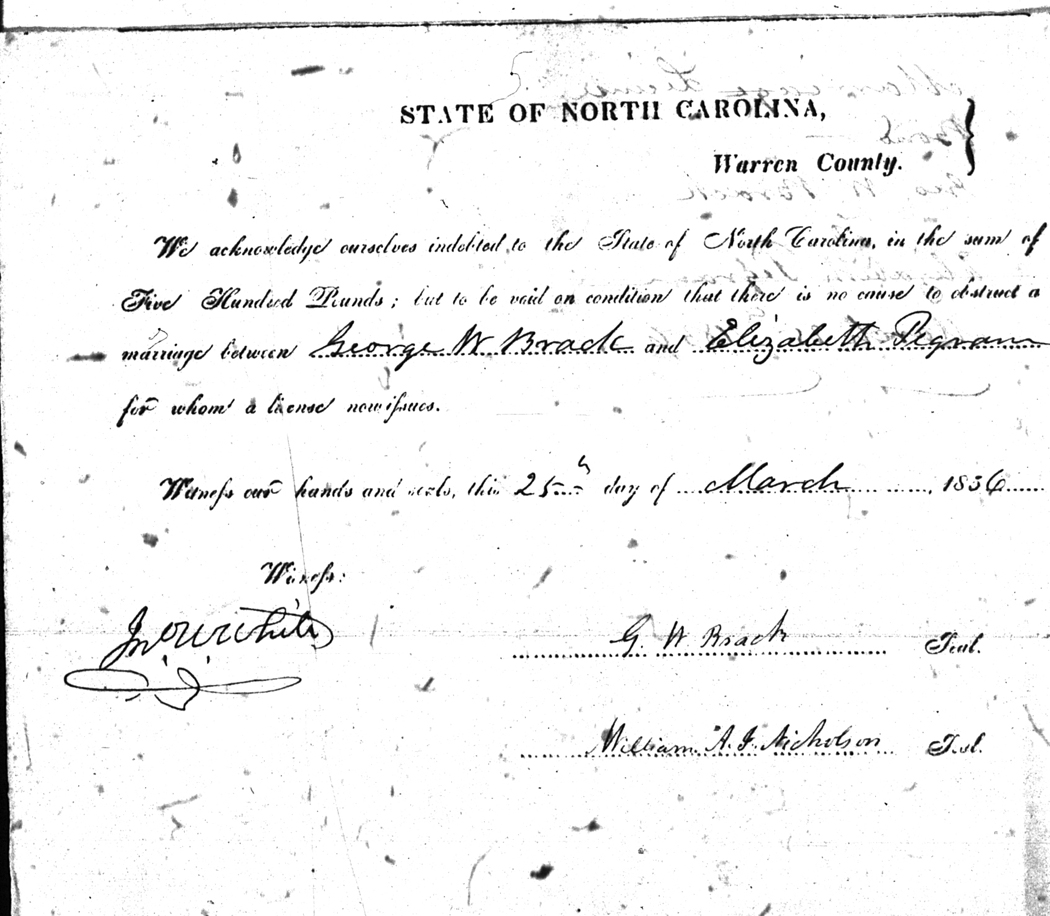 STATE OF NORTH CAROLINA,
Warren County.
We acknowledge ourselves indebted to the State of North Carolina, in the sum of
Five Hundred Pounds; but to be void on condition that there is no cause to obstruct a
marriage between George W Brack and Elizabeth Pegram
for whom a license now issues.
Witness our hands and seals, this 25th day of March, 1836
Witness:
Jno W White
G. W Brack Seal.
William A. J. Nicholson Seal.